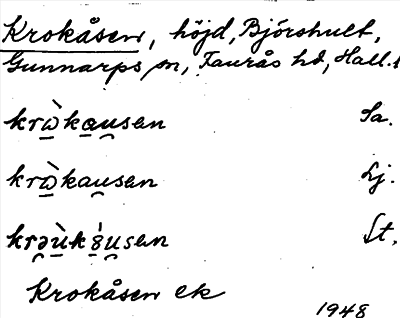 Krokåsen, höjd, Bjørshult,
Gunnarps sn, Faurås hd, Hall.
krɷ̀kausen Sa.
krɷ̀kausen Lj.
krəùk8́usen St.
Krokåsen ek
1948